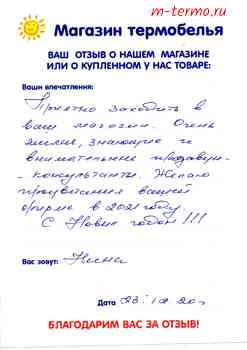 m-termo.ru
Магазин термобелья
ВАШ ОТЗЫВ О НАШЕМ МАГАЗИНЕ
ИЛИ О КУПЛЕННОМ У НАС ТОВАРЕ:
Ваши впечатления:
Приятно заходить в
ваш магазин. Очень
милые, знающие и
внимательные продавцы-
- консультанты. Желаю
процветания вашей
фирме в 2021 году.
С Новым годом!!!
Вас зовут: Нина
Дата 23.12.20г
БЛАГОДАРИМ ВАС ЗА ОТЗЫВ!